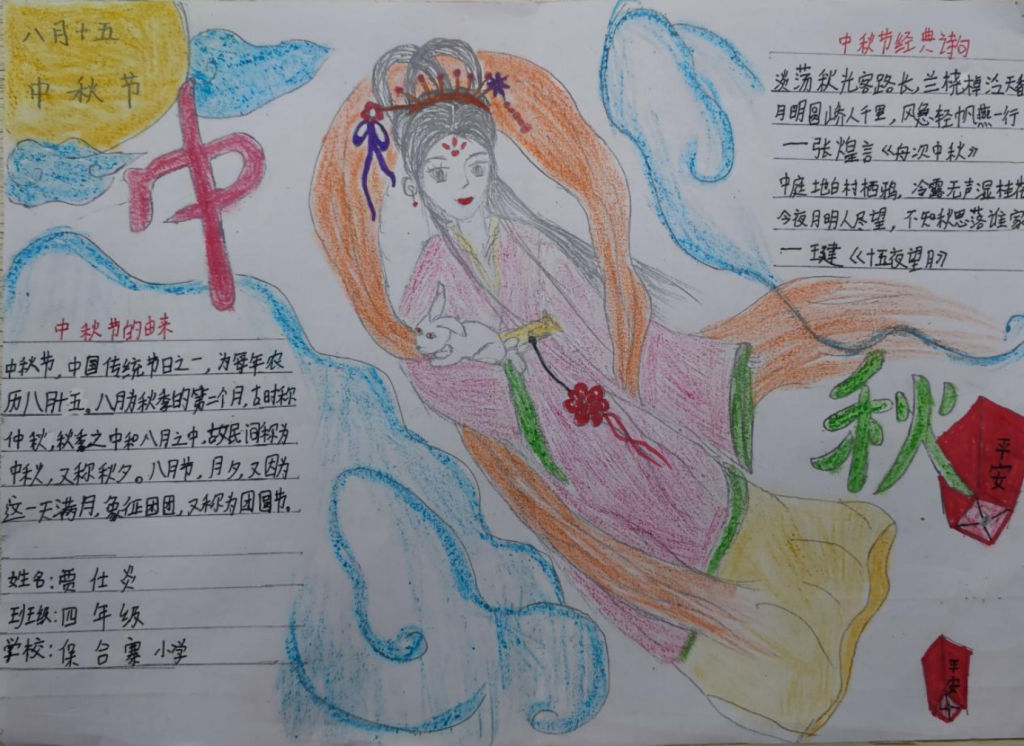 八月十五
中秋节
中
中秋节的由来
中秋节,中国传统节日之一,为每年农
历八月十五。八月为秋季的第二个月,古时称
仲秋,秋季之中和八月之中,故民间称为
中秋,又称秋夕。八月节,月夕,又因为
这一天满月,象征团团,又称为团圆节。
姓名:贾仕炎
班级:四年级
学校:保合寨小学
中秋节经典诗句
淡荡秋光客路长,兰桡棹泛天香
月明圆峤人千里,风急轻帆燕一行
一张煌言《舟次中秋》
中庭地白村栖鸦,冷露无声湿桂花
今夜月明人尽望,不知秋思落谁家
一王建《十五夜望月》
秋
平安
平安